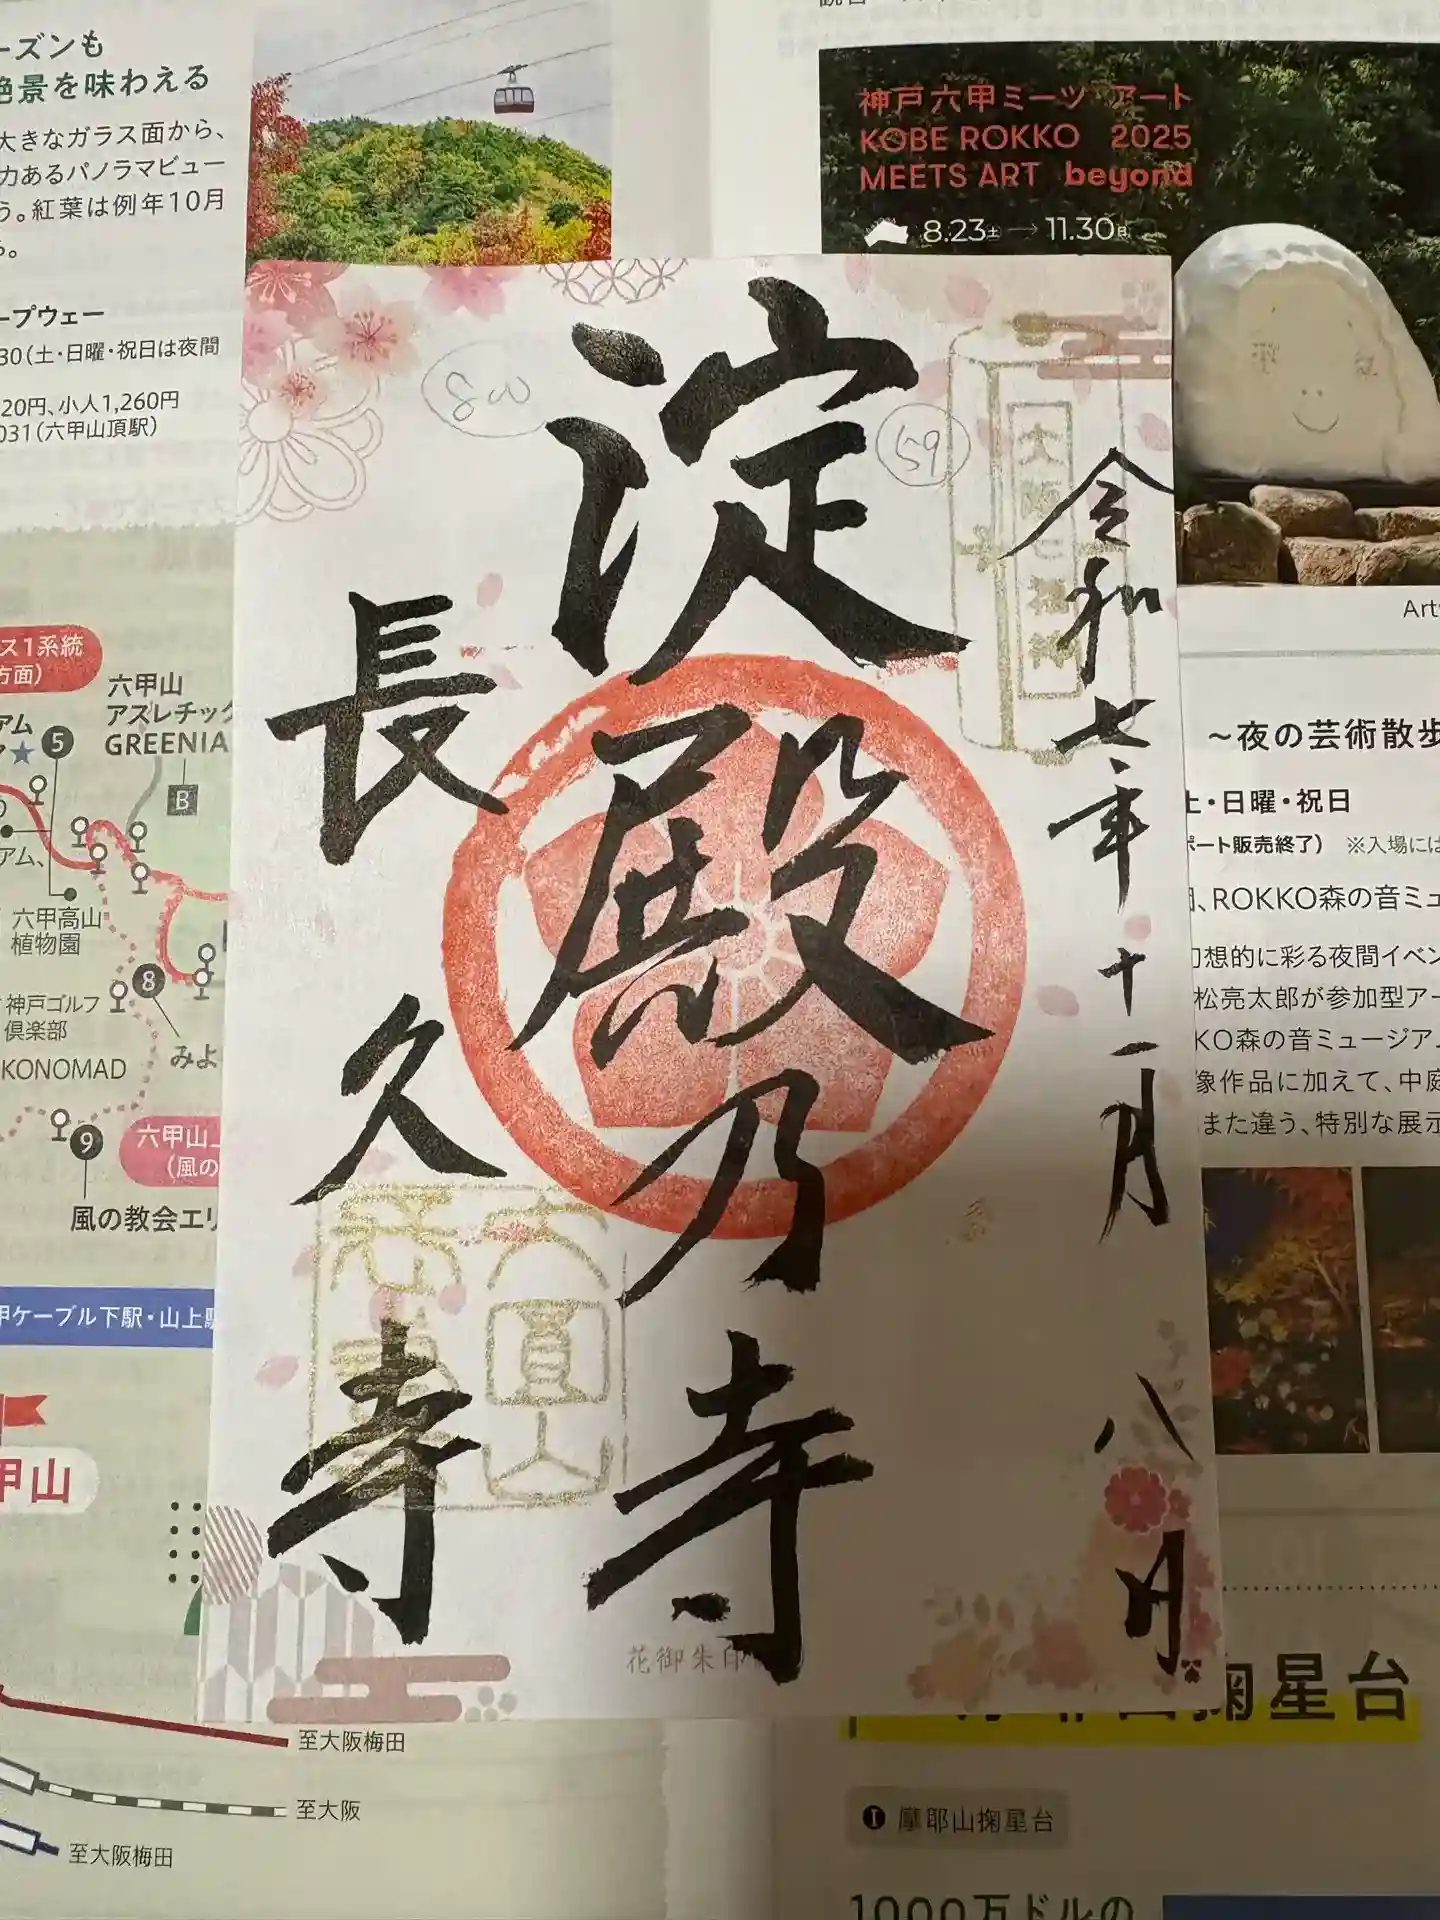 ーズンも
絶景を味わえる
大きなガラス面から、
力あるパノラマビュー
う。紅葉は例年10月
ープウェー
30(土・日曜・祝日は夜間
20円、小人1,260円
031(六甲山頂駅)
神戸六甲ミーツ・アート
KOBE ROKKO 2025
MEETS ART beyond
8.23土→11.30日
Art
令和七年十一月八日
59
大阪七福神
淀殿乃寺
長久寺
花御朱印
ス1系統
方面)
六甲山
アスレチック
GREENIA
アム
ア★
5
B
アム、
六甲高山
植物園
8
神戸ゴルフ
倶楽部
みよ
KONOMAD
9
六甲山上
(風の
風の教会エリ
甲ケーブル下駅・山上駅
甲山
至大阪梅田
至大阪
至大阪梅田
~夜の芸術散歩
土・日曜・祝日
ポート販売終了) ※入場には
、ROKKO森の音ミュ
幻想的に彩る夜間イベン
松亮太郎が参加型アー
KO森の音ミュージア
象作品に加えて、中庭
また違う、特別な展示
掬星台
1 摩耶山掬星台
1000万ドルの